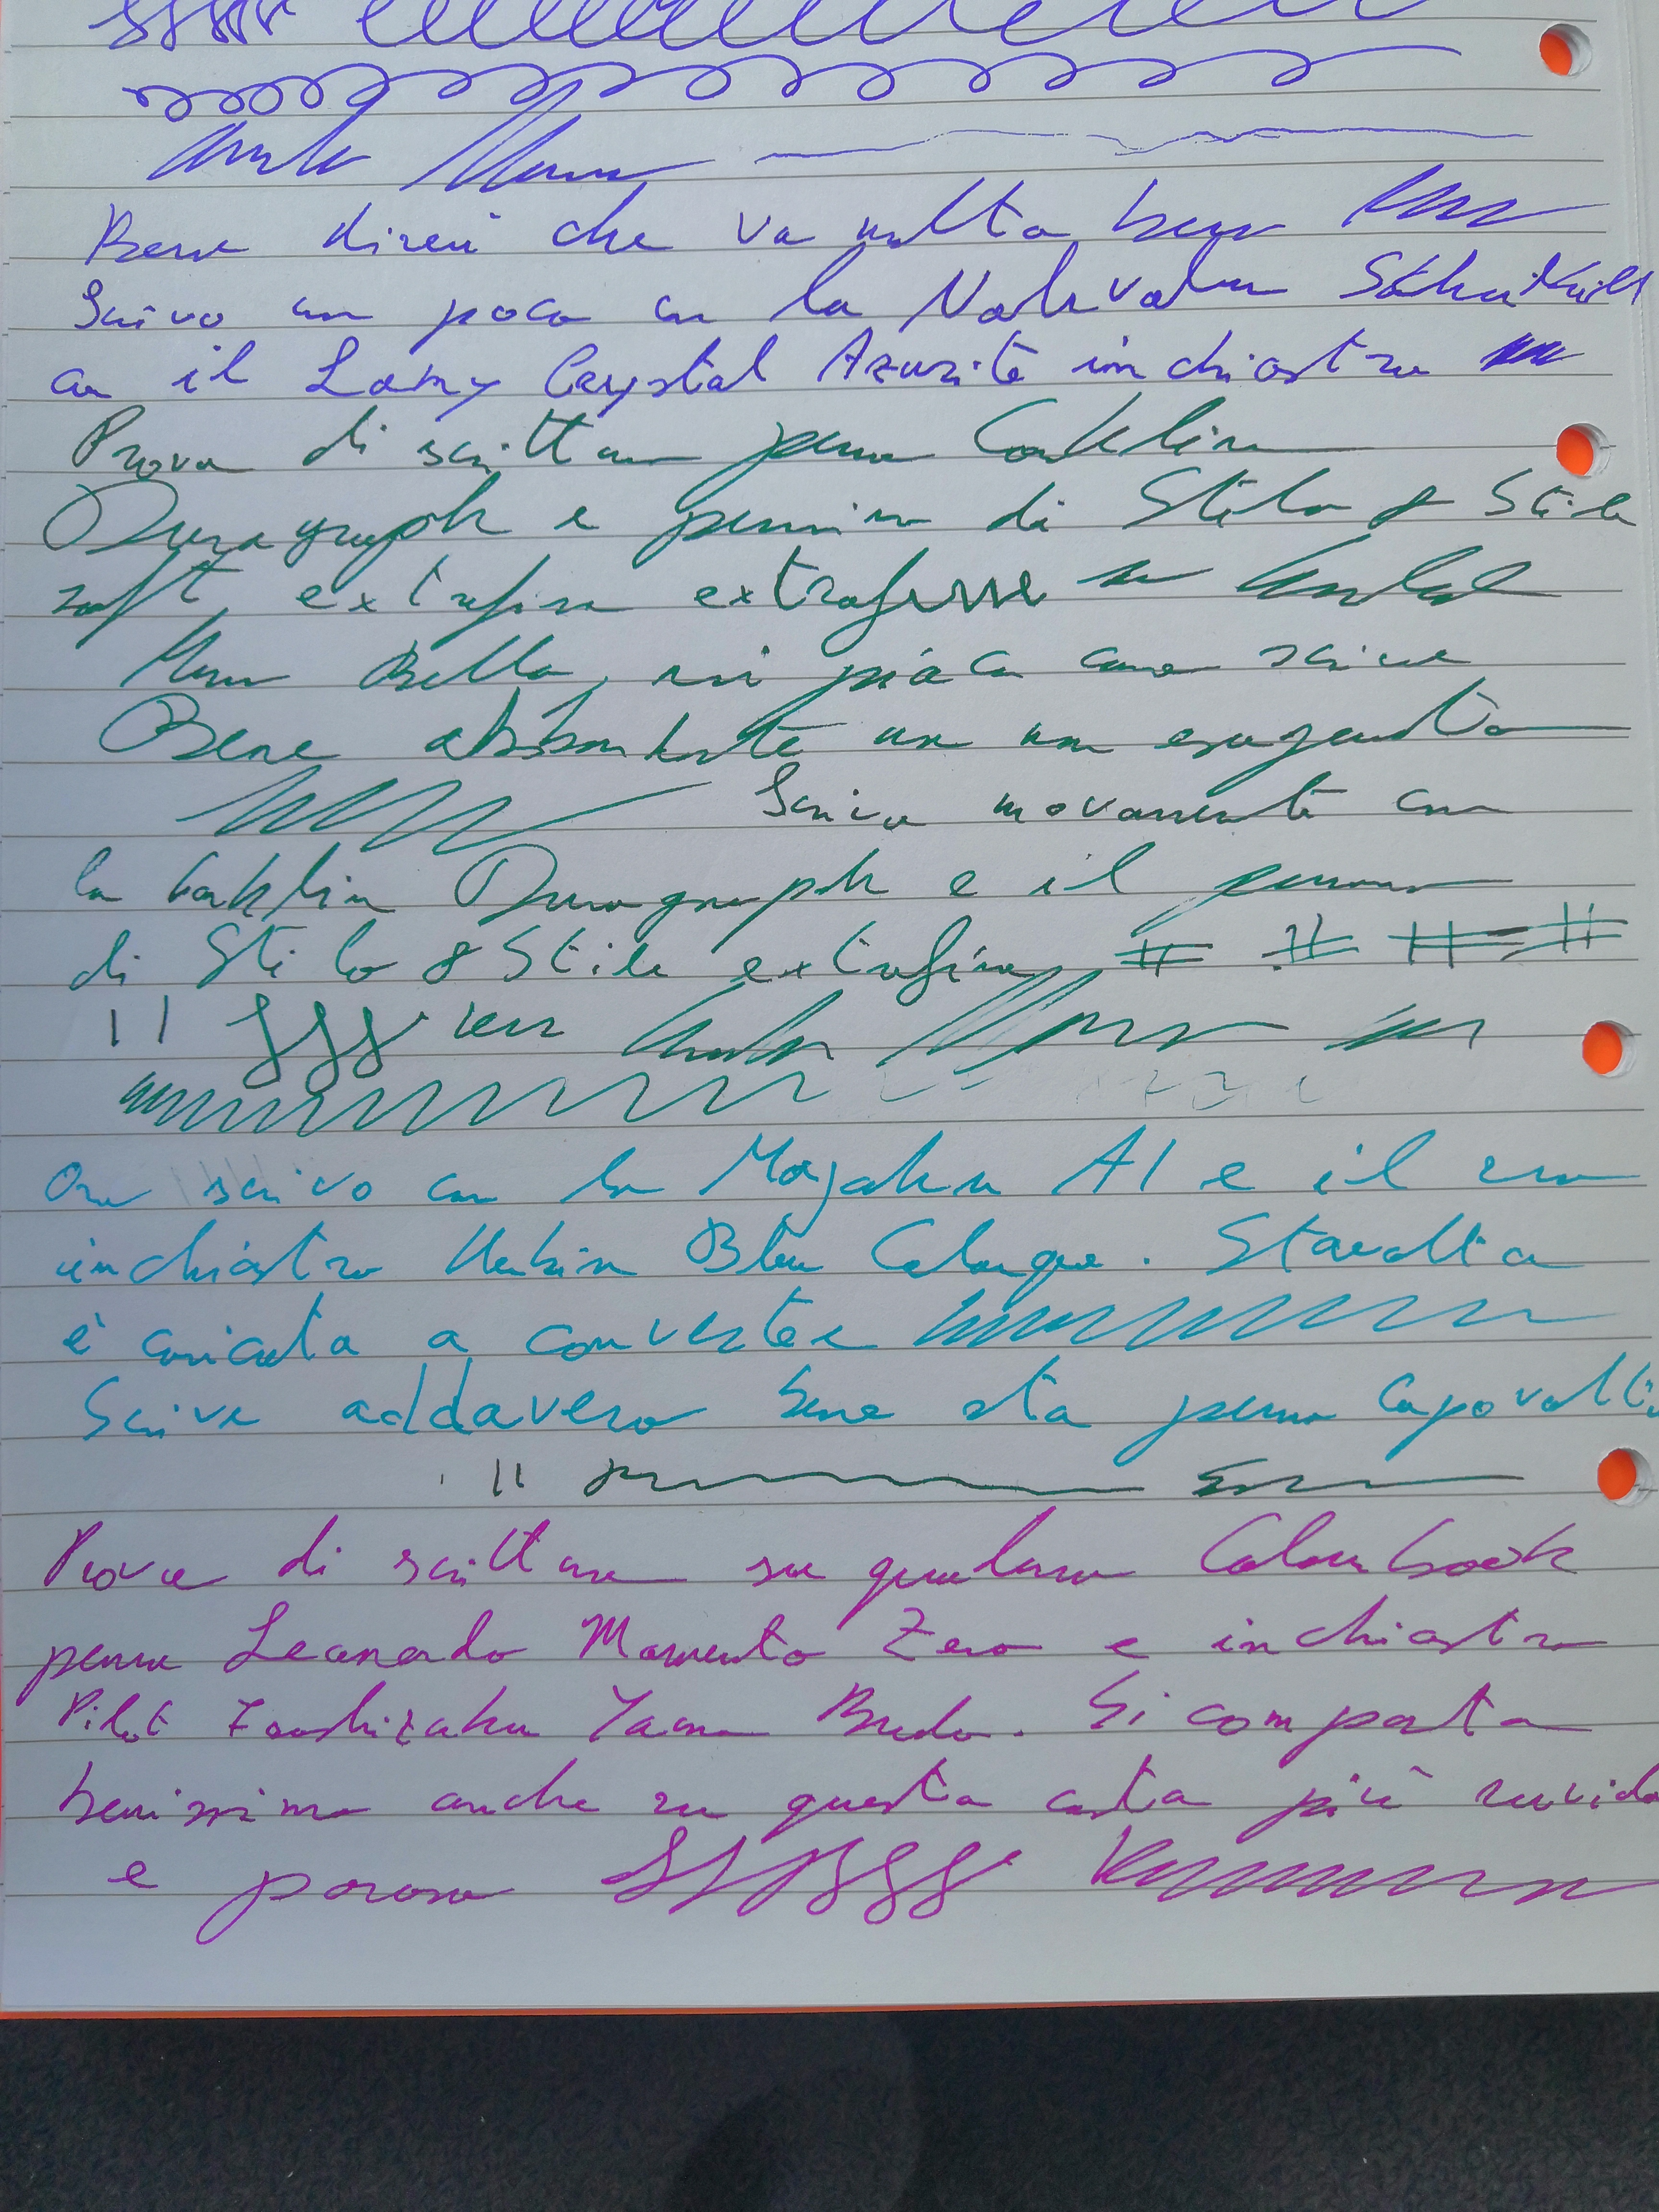 Bene direi che va molto bene
Scrivo un poco con la Nahvalur Schuylkill
con il Lamy Crystal Azurite inchiostro
Prova di scrittura penna Conklin
Duragraph e pennino di Stilo & Stile
soft, extrafine extrafine
Bella, mi piace come scrive
Bene abbondante ma non esagerato
Scrivo nuovamente con
la Conklin Duragraph e il pennino
di Stilo & Stile extrafine # # # #
Ora scrivo con la Majohn A1 e il suo
inchiostro Herbin Bleu Calanque. Stavolta
è caricata a converter
Scrive addavero bene sta penna capovolti
Prova di scrittura su quaderno Colourbook
penna Leonardo Momento Zero e inchiostro
Pilot Iroshizuku Yama Budo. Si comporta
benissimo anche su questa carta più ruvida
e porosa